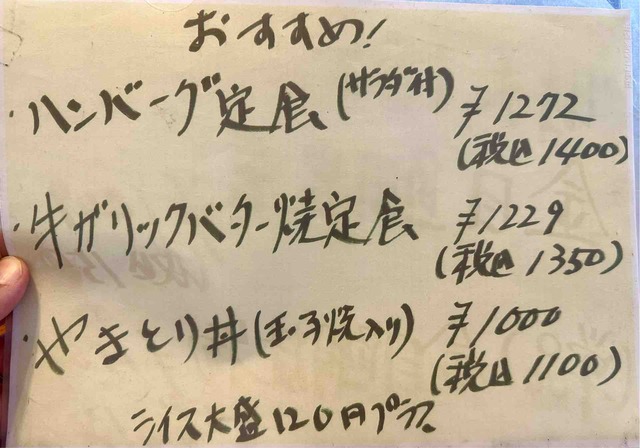 おすすめ!
・ハンバーグ定食(サラダ付) ¥1272
(税込1400)
・牛ガリックバター焼定食 ¥1229
(税込1350)
・やきとり丼(玉子焼入り) ¥1000
(税込1100)
ライス大盛120円プラス